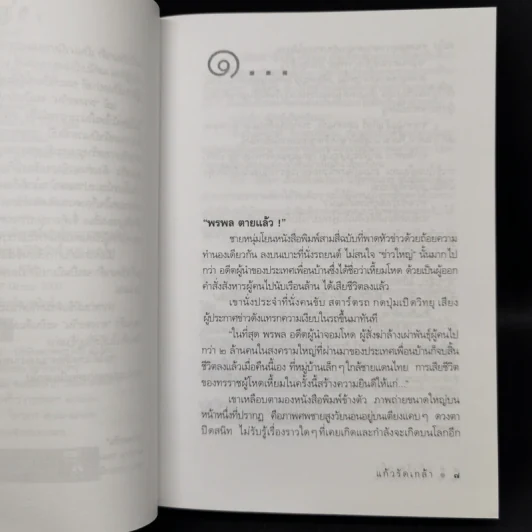 ๑...
“พรพล ตายแล้ว !”
ชายหนุ่มโยนหนังสือพิมพ์สามสี่ฉบับที่พาดหัวข่าวด้วยถ้อยความ
ทำนองเดียวกัน ลงบนเบาะที่นั่งรถยนต์ ไม่สนใจ “ข่าวใหญ่” นั้นมากไป
กว่า อดีตผู้นำของประเทศเพื่อนบ้านซึ่งได้ชื่อว่าเหี้ยมโหด ด้วยเป็นผู้ออก
คำสั่งสังหารผู้คนไปนับเรือนล้าน ได้เสียชีวิตลงแล้ว
เขานั่งประจำที่นั่งคนขับ สตาร์ตรถ กดปุ่มเปิดวิทยุ เสียง
ผู้ประกาศข่าวดังแทรกความเงียบในรถขึ้นมาทันที
“ในที่สุด พรพล อดีตผู้นำจอมโหด ผู้สั่งฆ่าล้างเผ่าพันธุ์ผู้คนไป
กว่า ๒ ล้านคนในสงครามใหญ่ที่ผ่านมาของประเทศเพื่อนบ้านก็จบสิ้น
ชีวิตลงแล้วเมื่อคืนนี้เอง ที่หมู่บ้านเล็กๆ ใกล้ชายแดนไทย การเสียชีวิต
ของทรราชผู้โหดเหี้ยมในครั้งนี้สร้างความยินดีให้แก่...”
เขาเหลือบตามองหนังสือพิมพ์ข้างตัว ภาพถ่ายขนาดใหญ่บน
หน้าหนึ่งที่ปรากฏ คือภาพศพชายสูงวัยนอนอยู่บนเตียงแคบๆ ดวงตา
ปิดสนิท ไม่รับรู้เรื่องราวใดๆ ที่เคยเกิดและกำลังจะเกิดบนโลกอีก
แก้วรัดเกล้า ๗